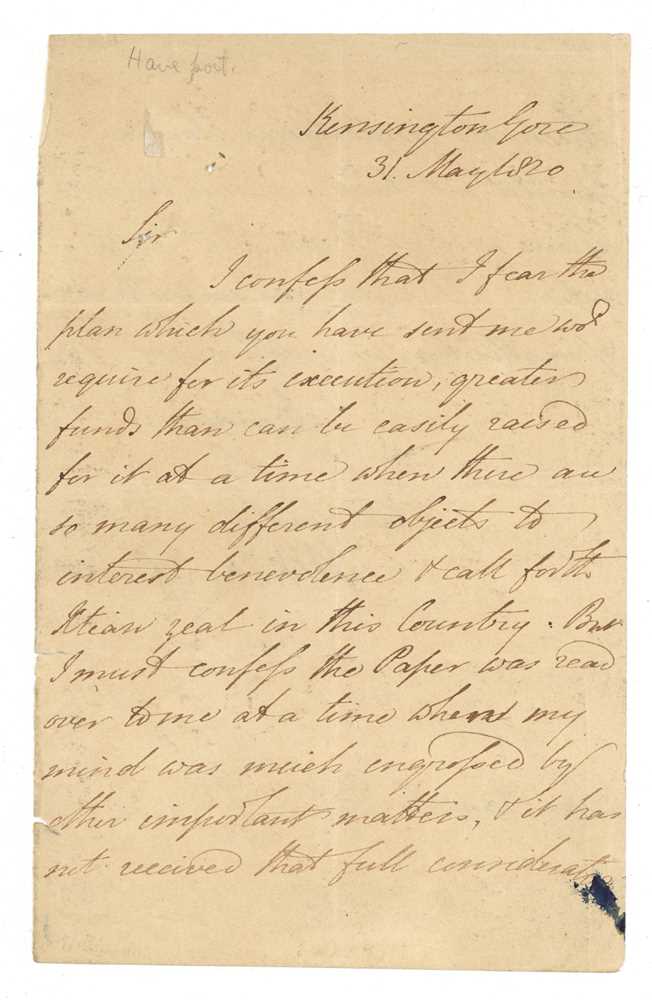 Have port.
Kensington Gore
31. May 1820
Sir
I confess that I fear the
plan which you have sent me wod
require for its execution, greater
funds than can be easily raised
for it at a time when there are
so many different objects to
interest benevolence & call forth
Xtian zeal in this Country. But
I must confess the Paper was read
over to me at a time when my
mind was much engrossed by
other important matters, & it has
not received that full considerat